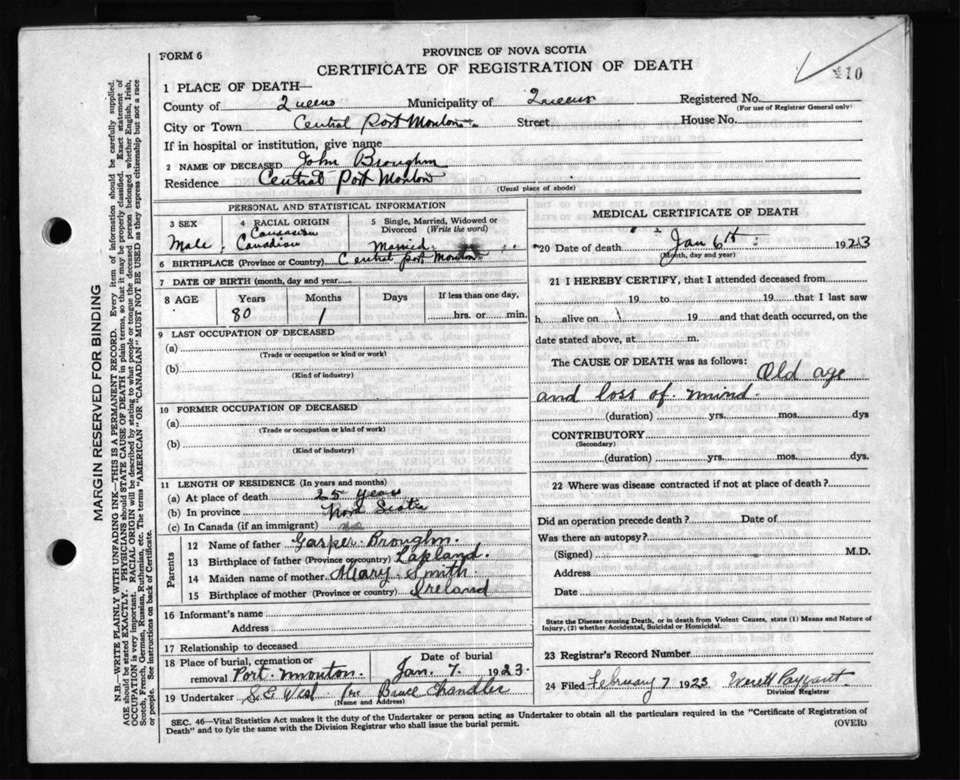 FORM 6
PROVINCE OF NOVA SCOTIA
CERTIFICATE OF REGISTRATION OF DEATH
110
1 PLACE OF DEATH—
County of Queens Municipality of Queens Registered No.
(For use of Registrar General only)
City or Town Central Port Mouton Street House No.
If in hospital or institution, give name
2 NAME OF DECEASED John Broughm
Residence Central Port Mouton
(Usual place of abode)
PERSONAL AND STATISTICAL INFORMATION
3 SEX
Male
4 RACIAL ORIGIN
Canadian
5 Single, Married, Widowed or
Divorced (Write the word)
Married
6 BIRTHPLACE (Province or Country) Central Port Mouton
7 DATE OF BIRTH (month, day and year
8 AGE Years Months Days If less than one day,
80 1 hrs. or min.
9 LAST OCCUPATION OF DECEASED
(a)
(Trade or occupation or kind or work)
(b)
(Kind of industry)
10 FORMER OCCUPATION OF DECEASED
(a)
(Trade or occupation or kind of work)
(b)
(Kind of industry)
11 LENGTH OF RESIDENCE (In years and months)
(a) At place of death 25 years
(b) In province Nova Scotia
(c) In Canada (if an immigrant)
Parents
12 Name of father Gasper Broughm
13 Birthplace of father (Province or country) Lapland
14 Maiden name of mother Mary Smith
15 Birthplace of mother (Province or country) Ireland
16 Informant's name
Address
17 Relationship to deceased
18 Place of burial, cremation or
removal Port Mouton
Date of burial
Jan. 7. 1923.
19 Undertaker Per Bruce Chandler
(Name and Address)
MEDICAL CERTIFICATE OF DEATH
20 Date of death Jan 6th 1923
(Month, day and year)
21 I HEREBY CERTIFY, that I attended deceased from
19 to 19 that I last saw
h alive on 19 and that death occurred, on the
date stated above, at m.
The CAUSE OF DEATH was as follows:
Old age
and loss of mind
(duration) yrs. mos. dys
CONTRIBUTORY
(Secondary)
(duration) yrs. mos. dys.
22 Where was disease contracted if not at place of death?
Did an operation precede death? Date of
Was there an autopsy?
(Signed) M.D.
Address
Date
State the Disease causing Death, or in death from Violent Causes, state (1) Means and Nature of
Injury, (2) whether Accidental, Suicidal or Homicidal.
23 Registrar's Record Number
24 Filed February 7 1923
Division Registrar
SEC. 46—Vital Statistics Act makes it the duty of the Undertaker or person acting as Undertaker to obtain all the particulars required in the "Certificate of Registration of
Death" and to fyle the same with the Division Registrar who shall issue the burial permit.
(OVER)
MARGIN RESERVED FOR BINDING
N.B.—WRITE PLAINLY WITH UNFADING INK—THIS IS A PERMANENT RECORD. Every item of information should be carefully supplied.
AGE should be stated EXACTLY. PHYSICIANS should STATE CAUSE OF DEATH in plain terms, so that it may be properly classified. Exact statement of
OCCUPATION is very important. RACIAL ORIGIN will be described by stating to what people or tongue the deceased person belonged whether English, Irish,
Scotch, French, German, Russian, Ruthenian, etc. The terms "AMERICAN" OR "CANADIAN" MUST NOT BE USED as they express citizenship but not a race
or people. See instructions on back of Certificate.